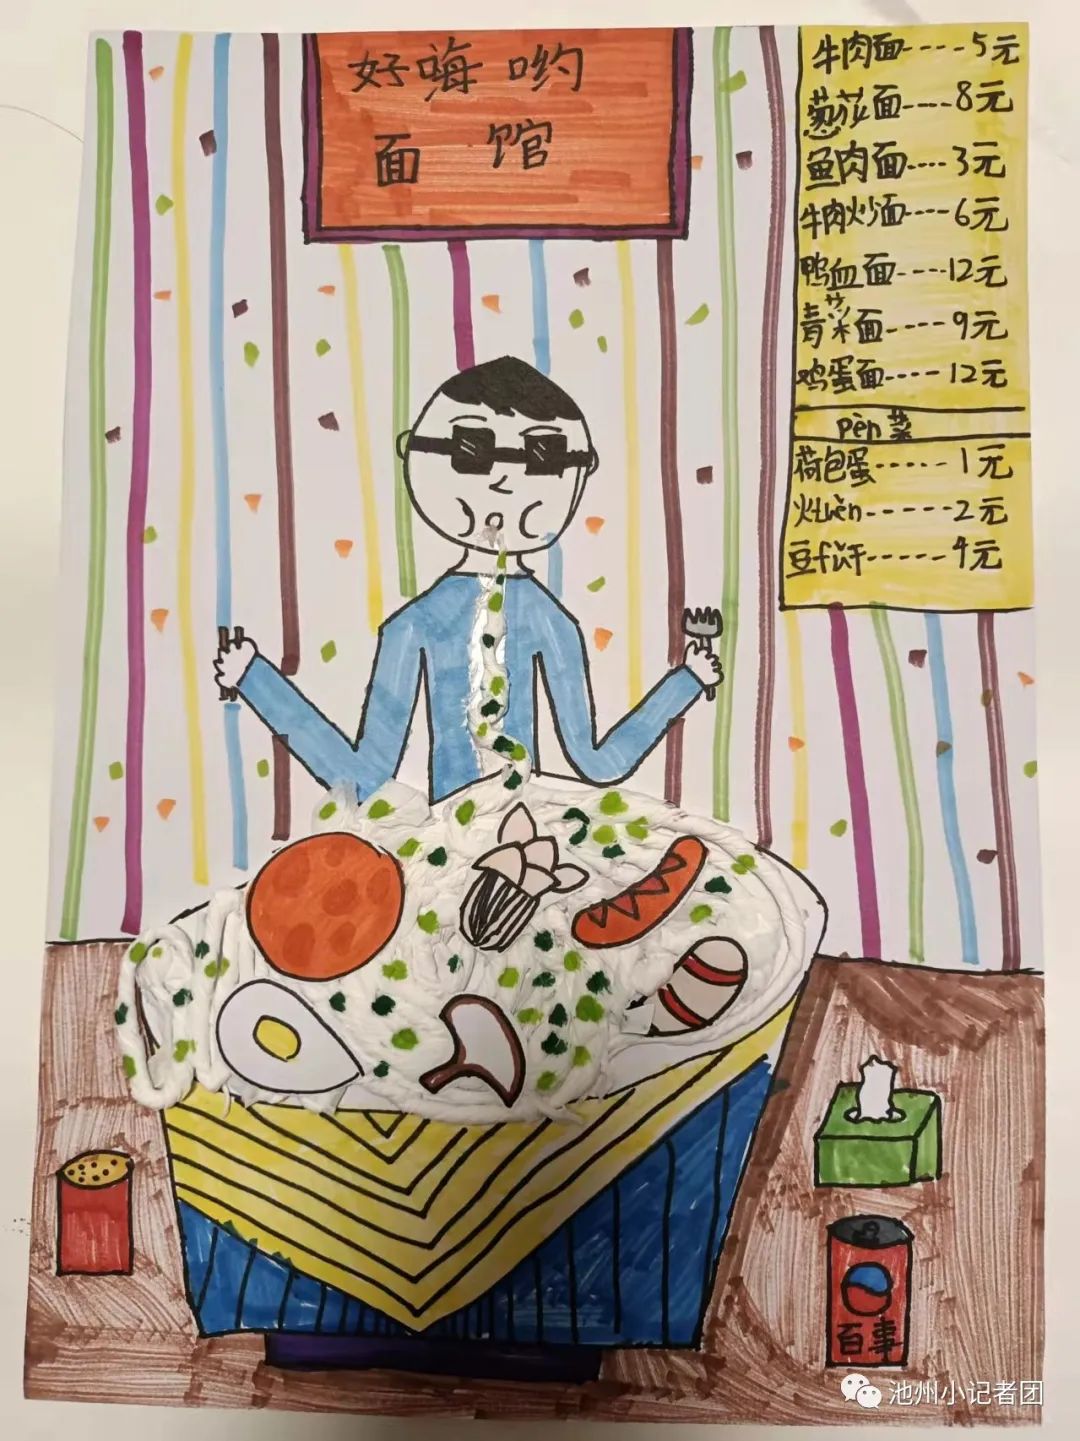 好嗨哟
面馆
牛肉面----5元
葱花面----8元
鱼肉面----3元
牛肉炒面----6元
鸭血面----12元
青菜面----9元
鸡蛋面----12元
pèn菜
荷包蛋-----1元
火tuěn-----2元
豆fǔ干-----4元
百事
池州小记者团